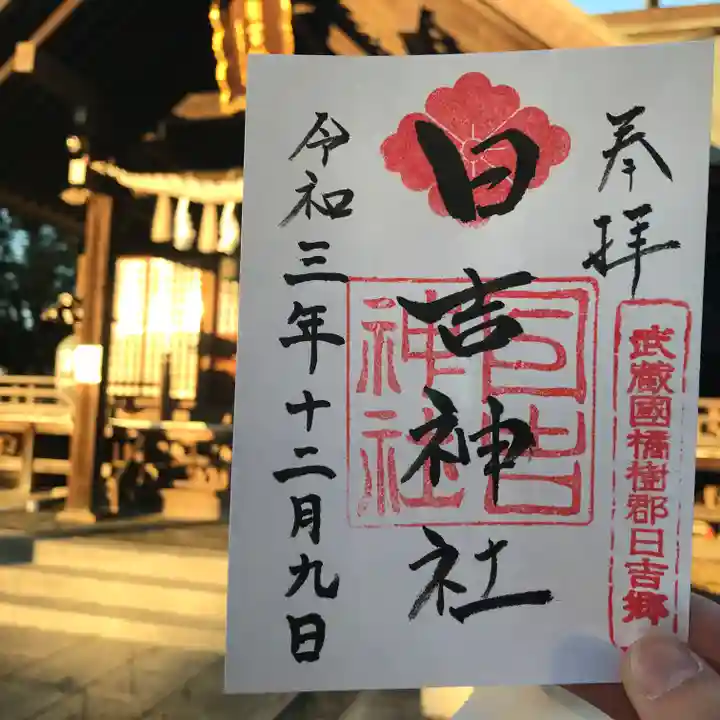 奉拝
武蔵國橘樹郡日吉郷
日吉神社
日吉神社
令和三年十二月九日